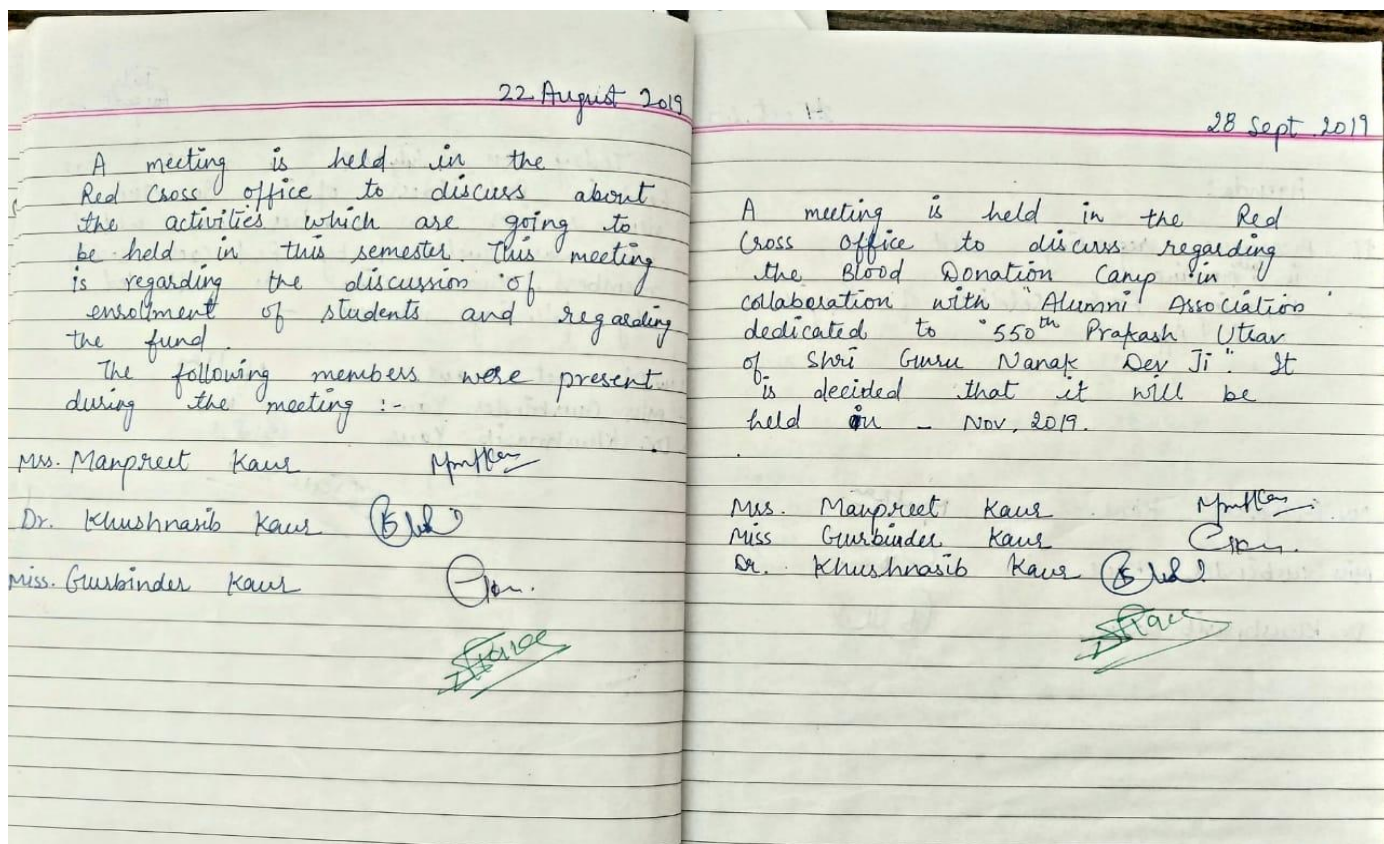 22 August 2019
A meeting is held in the
Red Cross office to discuss about
the activities which are going to
be held in this semester. This meeting
is regarding the discussion of
enrollment of students and regarding
the fund.
The following members were present
during the meeting :-
Mrs. Manpreet Kaur
Dr. Khushnasib Kaur
Miss. Gurbinder Kaur
28 Sept 2019
A meeting is held in the Red
Cross office to discuss regarding
the Blood Donation Camp in
collaboration with "Alumni Association"
dedicated to "550th Prakash Utsav
of Shri Guru Nanak Dev Ji". It
is decided that it will be
held in - Nov, 2019.
Mrs. Manpreet Kaur
Miss Gurbinder Kaur
Dr. Khushnasib Kaur